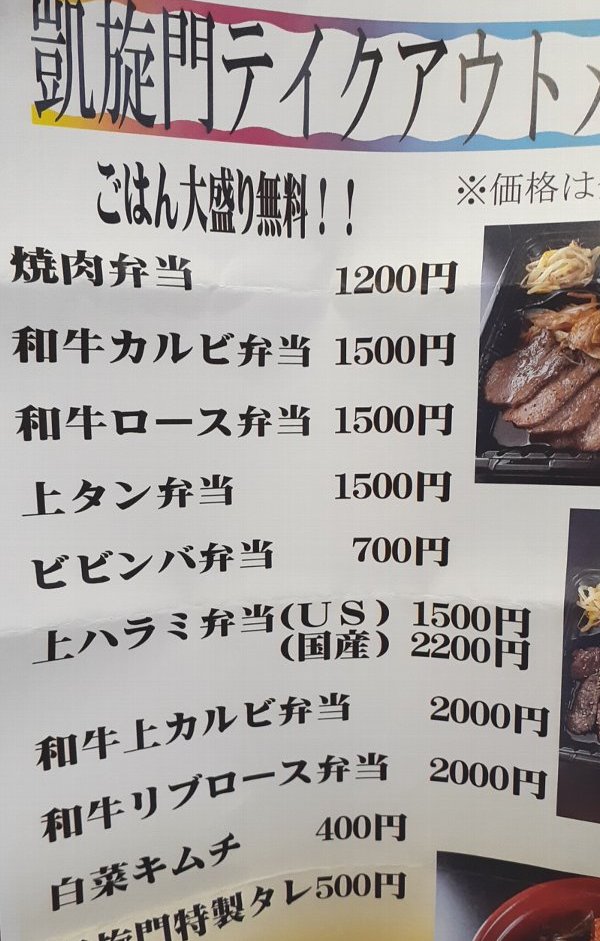 凱旋門テイクアウト
ごはん大盛り無料！！
※価格は
焼肉弁当 1200円
和牛カルビ弁当 1500円
和牛ロース弁当 1500円
上タン弁当 1500円
ビビンバ弁当 700円
上ハラミ弁当(US) 1500円
(国産) 2200円
和牛上カルビ弁当 2000円
和牛リブロース弁当 2000円
白菜キムチ 400円
旋門特製タレ 500円